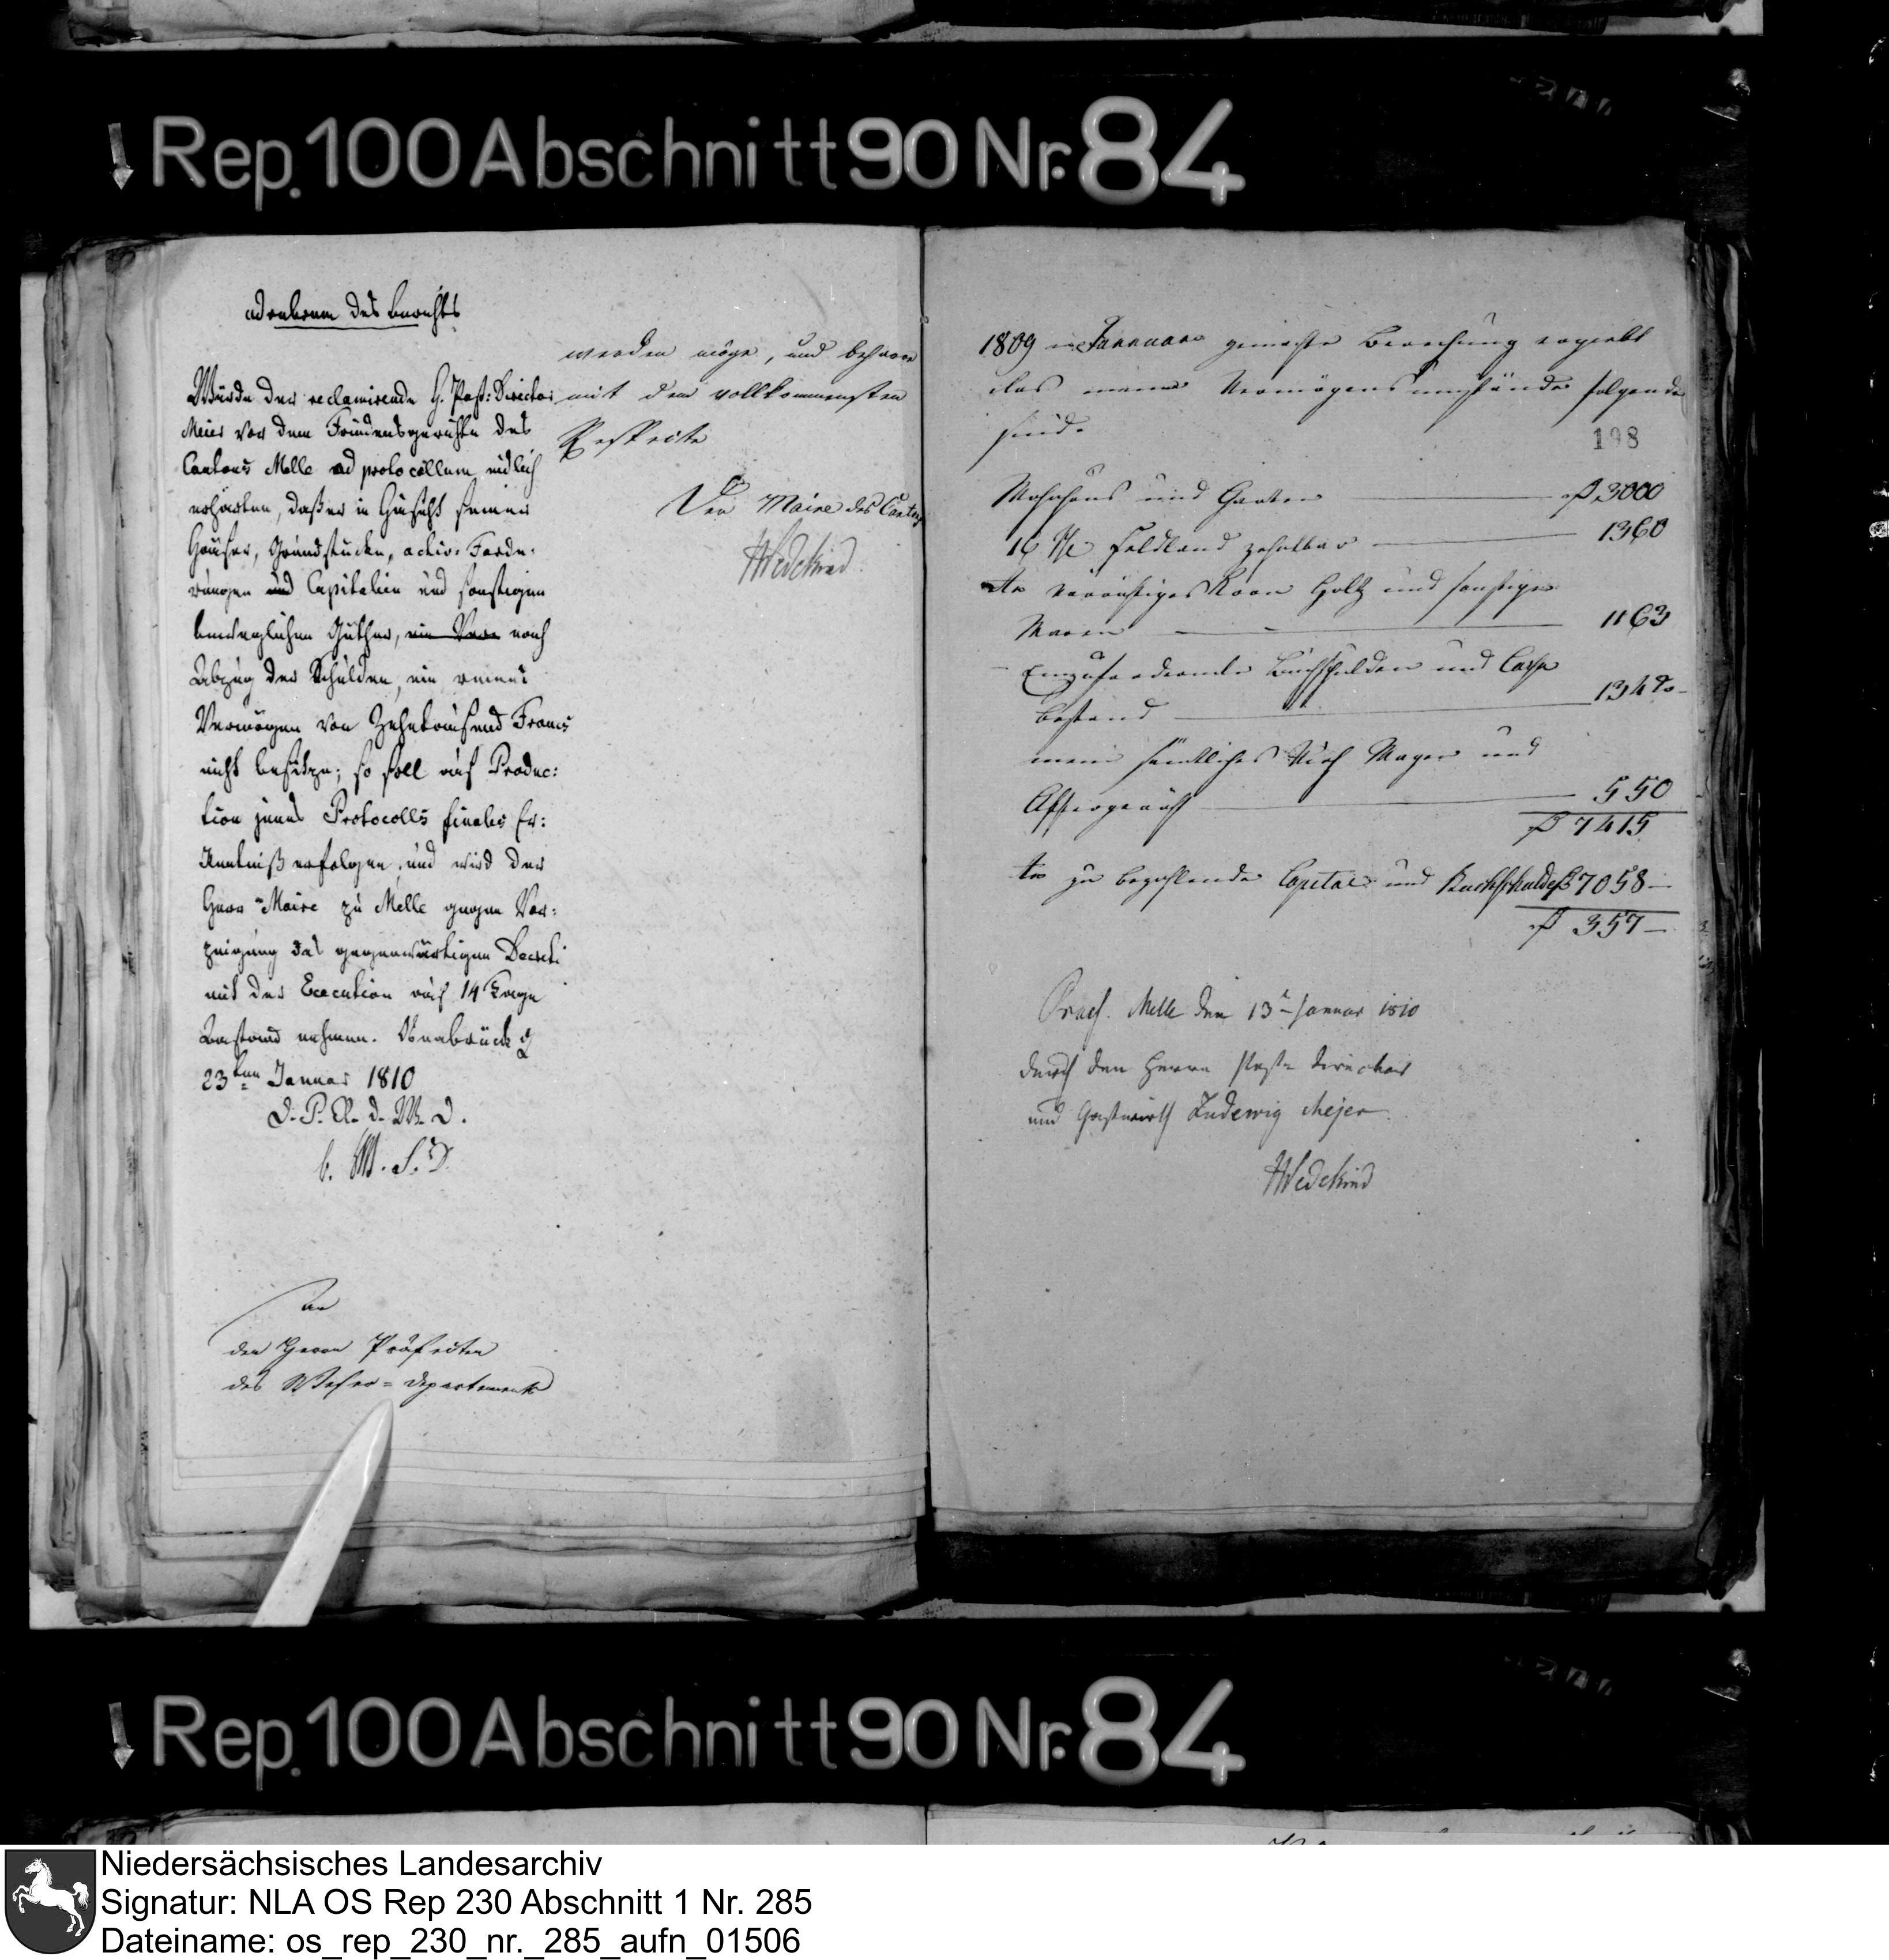 Rep. 100 Abschnitt 90 Nr. 84
ad calcem des Berichts
Würde der reclamirende H. Post: Director
Meier vor dem Friedensgerichte des
Cantons Melle ad protocollum eidlich
erhärten, daß er in Hinsicht seiner
Häuser, Grundstücke, activ-Forde-
rungen und Capitalien und sonstigen
beweglichen Güther, ein Ver noch
Abzug der Schulden, ein reines
Vermögen von Zehntausend Francs
nicht besitze; so soll auf Produc:
tion jenes Protocolls finales Er:
kenntniß erfolgen, und wird der
Herr Maire zu Melle gegen Vor:
zeigung des gegenwärtigen Decreti
mit der Execution auf 14 Tage
Anstand nehmen. Osnabrück d
23ten Januar 1810
D. P. d. W. D.
b. W. S. D.
An
den Herrn Präfecten
des Weser-Departements
werden möge, und beharre
mit dem vollkommensten
Respecte
Der Maire des Cantons
Wedekind
1809 in Januar gemachte Berechnung ergiebt
das meine Vermögensumstände folgende
sind.
198
Wohnhaus und Garten 3000
16 Feldland zehntbar 1360
An vorräthiges Korn Holtz und sonstige
Waren 1163
Einzufordernde Buchschulden und Casse
bestand 1342
mein sämtliches Vieh Wagen und
Ackergeräth 550
7415
zu bezahlende Capital und Buchschulden 7058
357
Praes. Melle den 13t Januar 1810
durch den Herrn Post-Director
und Gastwirth Ludewig Meyer
Wedekind
Rep. 100 Abschnitt 90 Nr. 84
Niedersächsisches Landesarchiv
Signatur: NLA OS Rep 230 Abschnitt 1 Nr. 285
Dateiname: os_rep_230_nr._285_aufn_01506